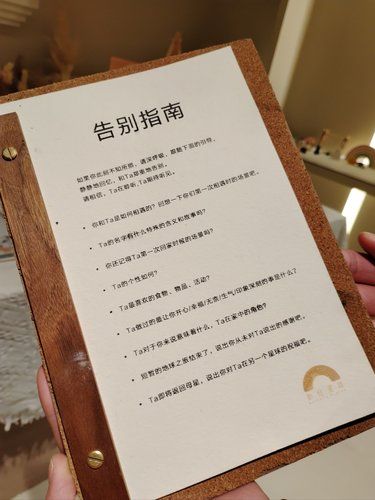 告别指南
如果你此刻不知所措，请深呼吸，跟随下面的引导，
静静地回忆，和Ta郑重地告别。
请相信，Ta在聆听，Ta期待听见。
• 你和Ta是如何相遇的？回想一下你们第一次相遇时的场景吧。
• Ta的名字有什么特殊的含义和故事吗？
• 你还记得Ta第一次回家时候的场景吗？
• Ta的个性如何？
• Ta最喜欢的食物、物品、活动？
• Ta做过的最让你开心/幸福/无奈/生气/印象深刻的事是什么？
• Ta对于你来说意味着什么，Ta在家中的角色？
• 短暂的地球之旅结束了，说出你从未对Ta说出的感谢吧。
• Ta即将返回母星，说出你对Ta在另一个星球的祝福吧。